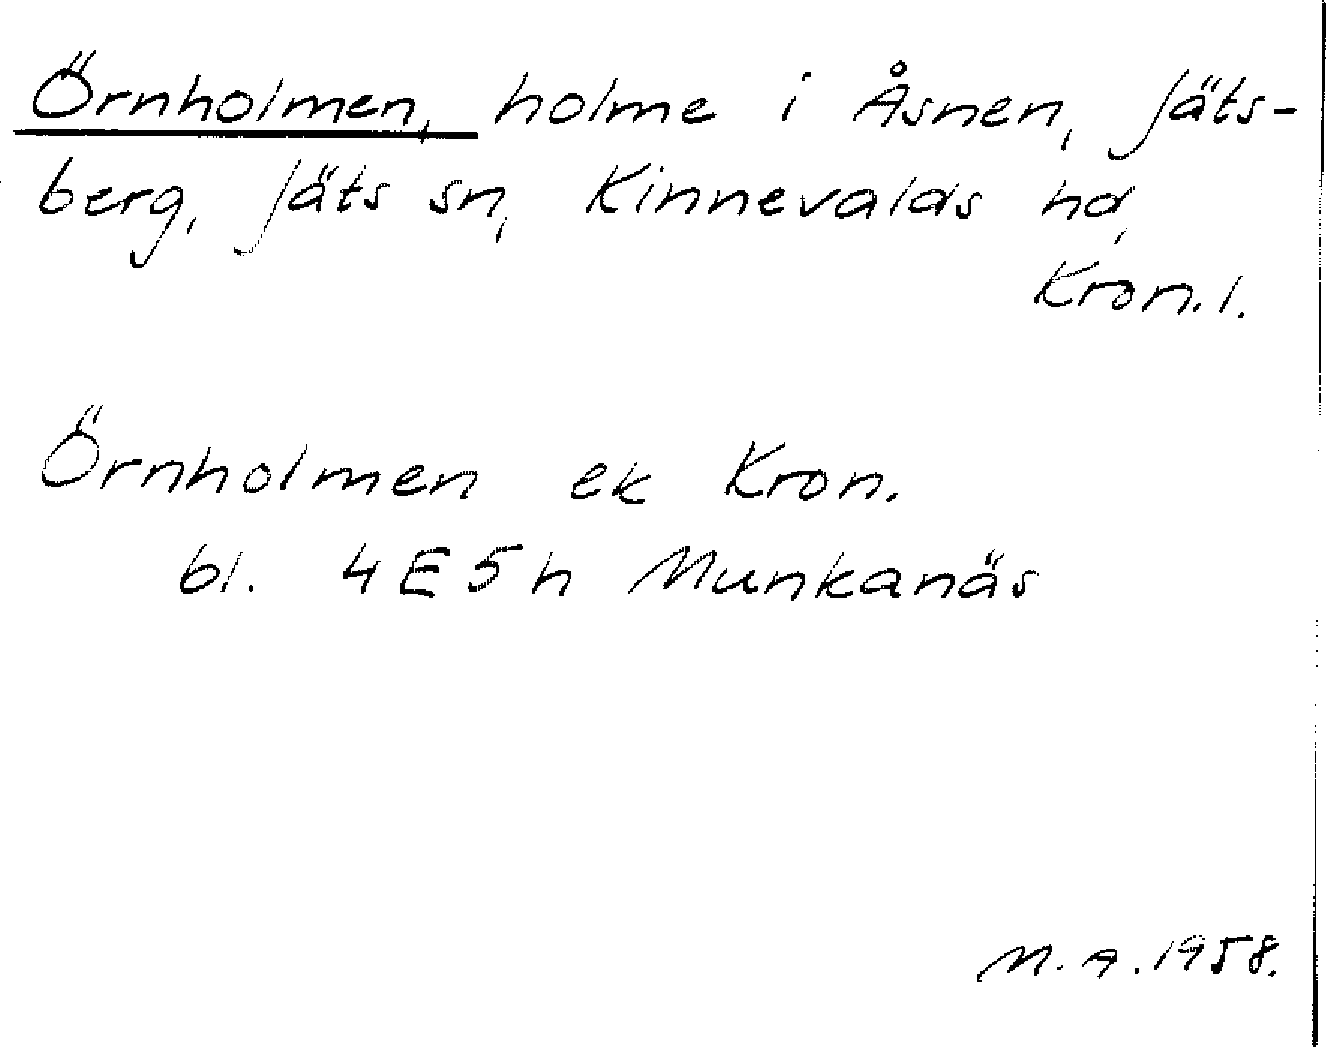 Örnholmen, holme i Åsnen, Jäts-
berg, Jäts sn, Kinnevalds hd,
Kron.l.
Örnholmen ek Kron.
bl. 4E5h Munkanäs
M.A.1958.